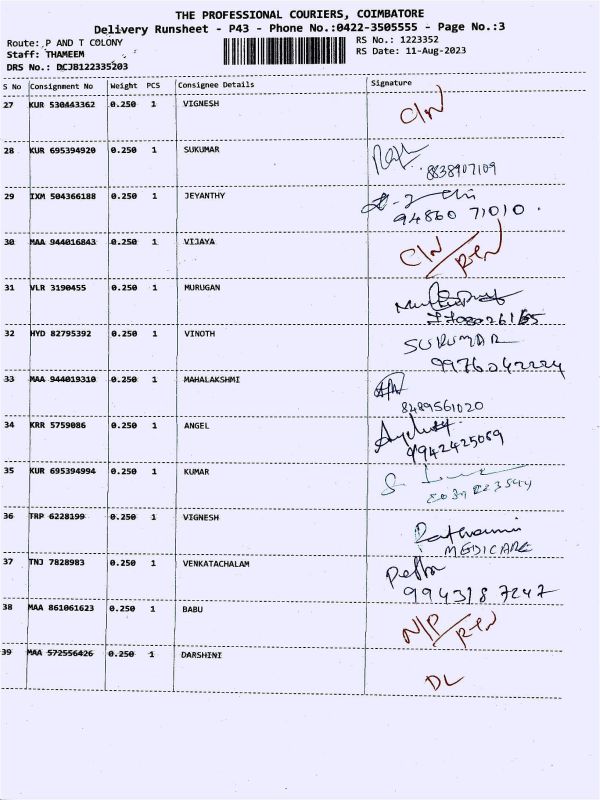 THE PROFESSIONAL COURIERS, COIMBATORE
Delivery Runsheet - P43 - Phone No.:0422-3505555 - Page No.:3
Route: P AND T COLONY RS No.: 1223352
Staff: THAMEEM RS Date: 11-Aug-2023
DRS No.: DCJB122335203
S No Consignment No Weight PCS Consignee Details Signature
27 KUR 530443362 0.250 1 VIGNESH C/N
28 KUR 695394920 0.250 1 SUKUMAR
8838907109
29 IXM 504366188 0.250 1 JEYANTHY
94860 71010
30 MAA 944016843 0.250 1 VIJAYA C/N
31 VLR 3190455 0.250 1 MURUGAN
32 HYD 82795392 0.250 1 VINOTH SUKUMAR
33 MAA 944019310 0.250 1 MAHALAKSHMI
8489561020
34 KRR 5759086 0.250 1 ANGEL
9942425069
35 KUR 695394994 0.250 1 KUMAR
36 TRP 6228199 0.250 1 VIGNESH
MEDICARE
37 TNJ 7828983 0.250 1 VENKATACHALAM
994318 7247
38 MAA 861061623 0.250 1 BABU N/P
39 MAA 572556426 0.250 1 DARSHINI
DL